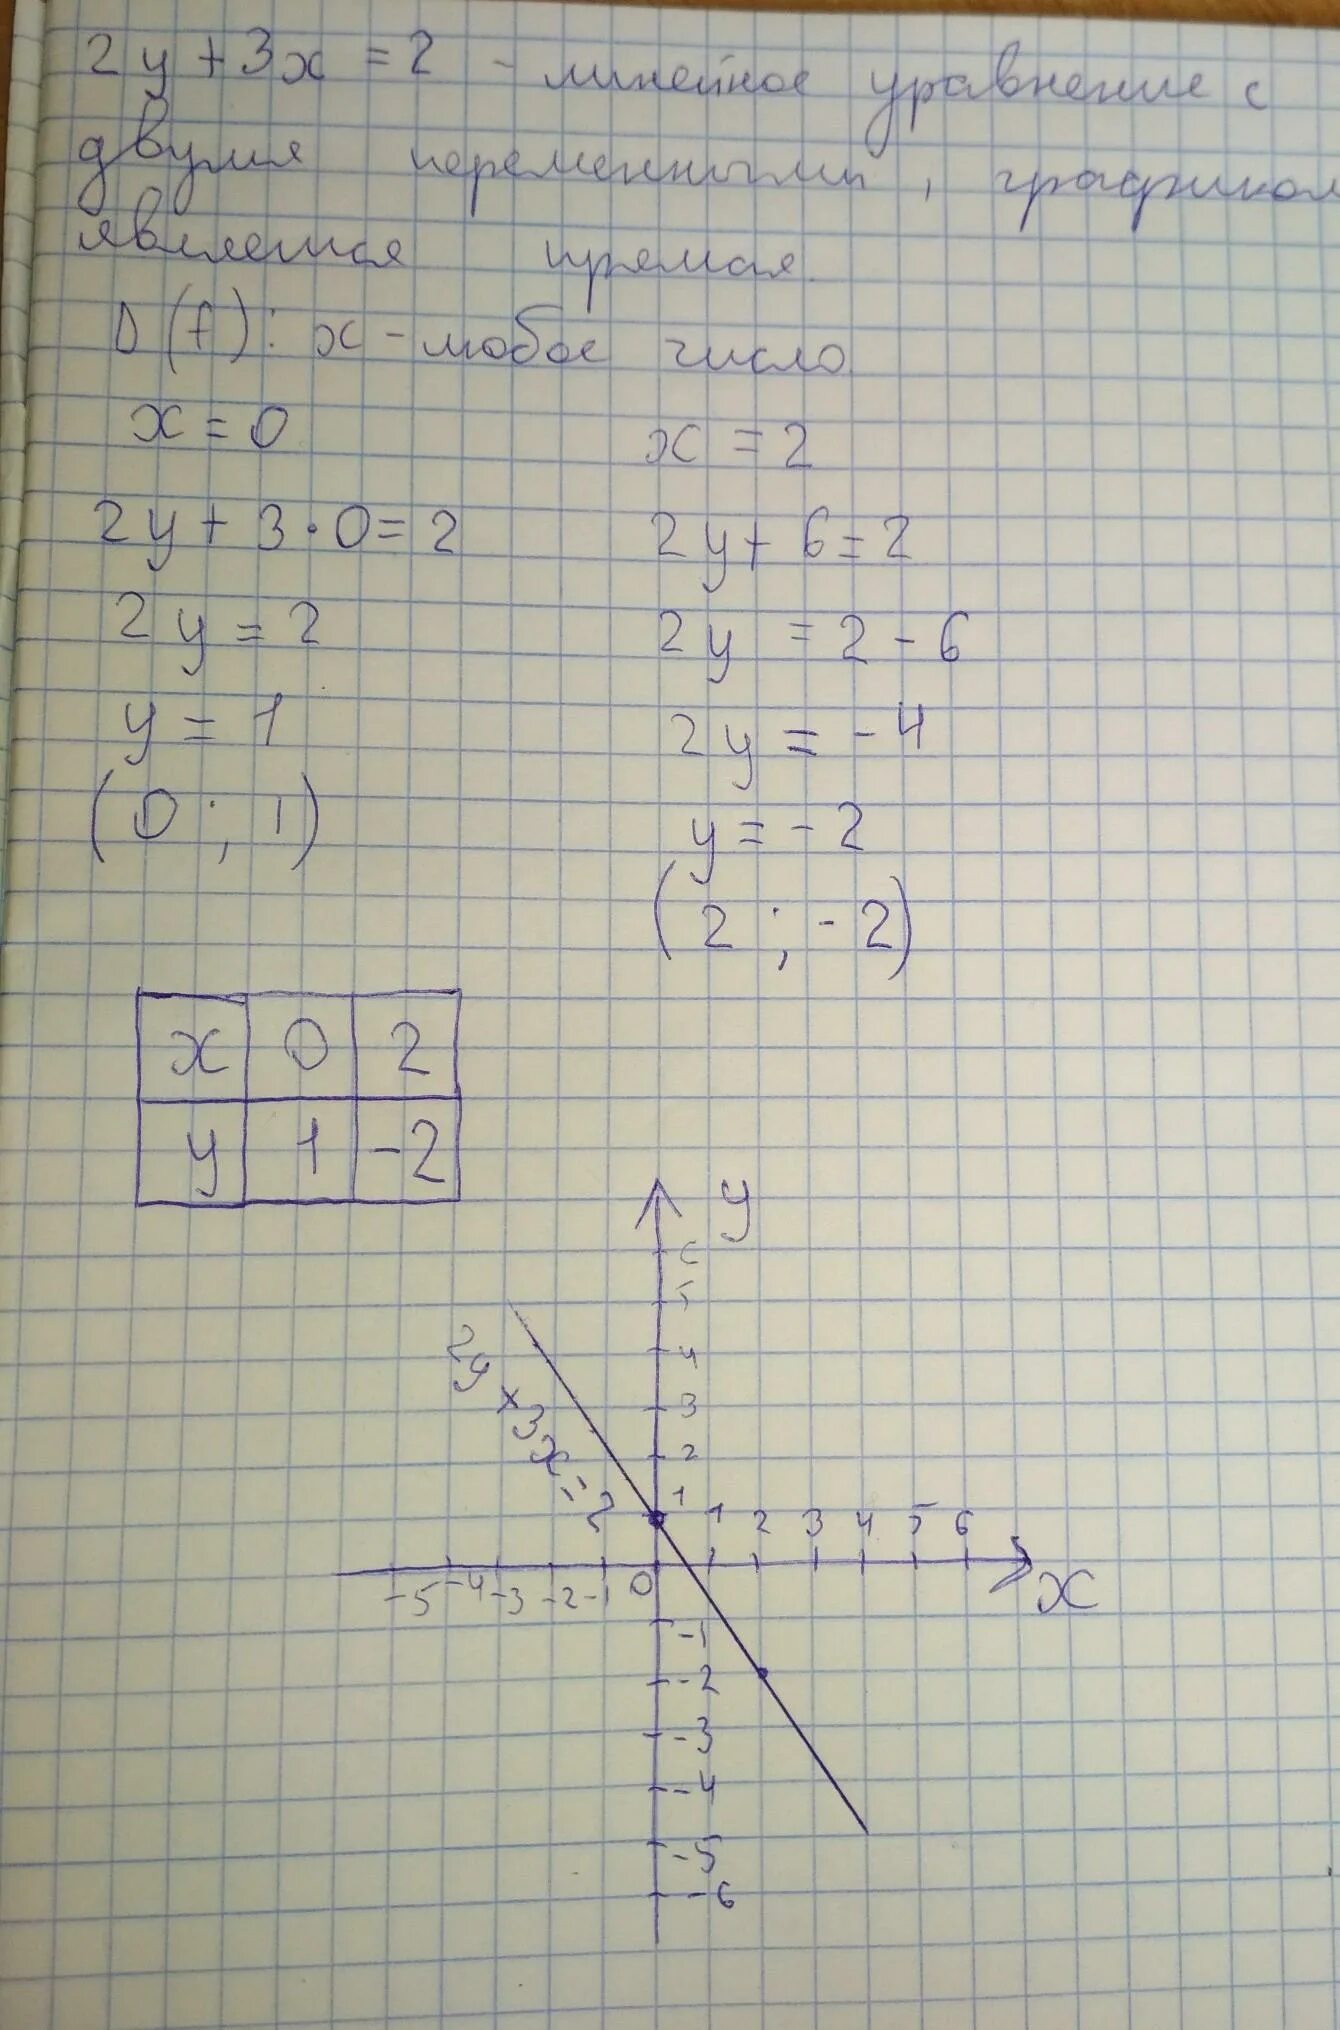 2y + 3x = 2 - линейное уравнение с
двумя переменными, графиком
является прямая.
D(f): x - любое число
x = 0
2y + 3 · 0 = 2
2y = 2
y = 1
(0 ; 1)
x = 2
2y + 6 = 2
2y = 2 - 6
2y = -4
y = -2
(2 ; -2)
x 0 2
y 1 -2
y
6
5
4
3
2
1
2y + 3x = 2
1 2 3 4 5 6
-5 -4 -3 -2 -1 0
x
-1
-2
-3
-4
-5
-6